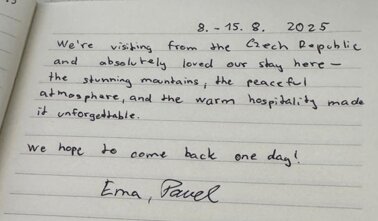 8. - 15. 8. 2025
We're visiting from the Czech Republic
and absolutely loved our stay here –
the stunning mountains, the peaceful
atmosphere, and the warm hospitality made
it unforgettable.
We hope to come back one day!
Ema, Pavel